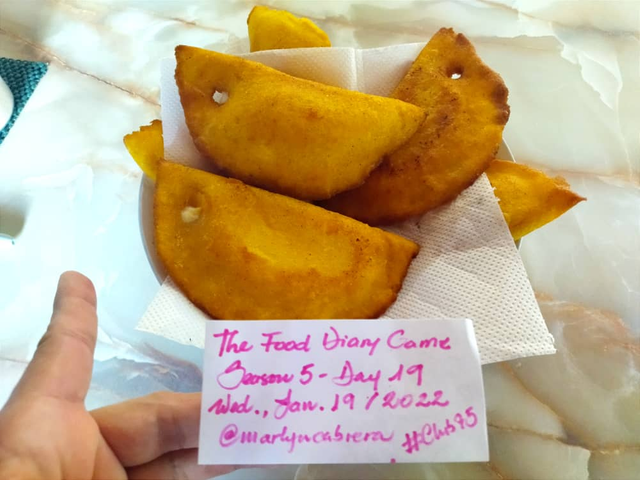 The Food Diary Game
Season 5 - Day 19
Wed., Jan. 19 / 2022
@marlyncabrera #Club75